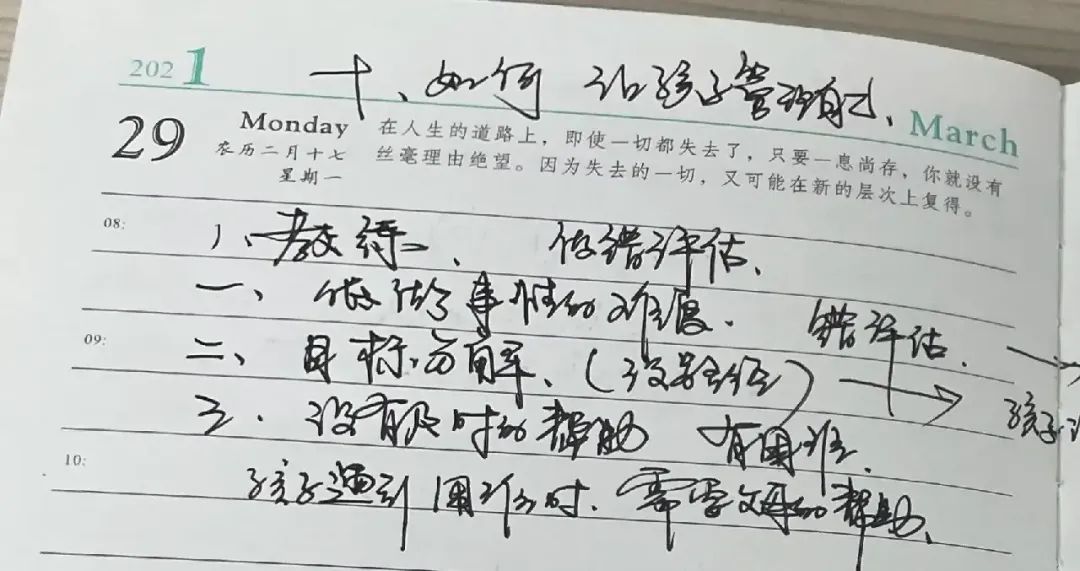 2021
十、如何让孩子管理自己、
March
29
Monday
农历二月十七
星期一
在人生的道路上，即使一切都失去了，只要一息尚存，你就没有
丝毫理由绝望。因为失去的一切，又可能在新的层次上复得。
08:
1、教练、 做错评估、
一、做事性的难度. 错评估.
09:
二、目标分解、(没经验)
三. 没有及时的帮助 有困难.
孩子
10:
孩子遇到困难时.需要父母的帮助、